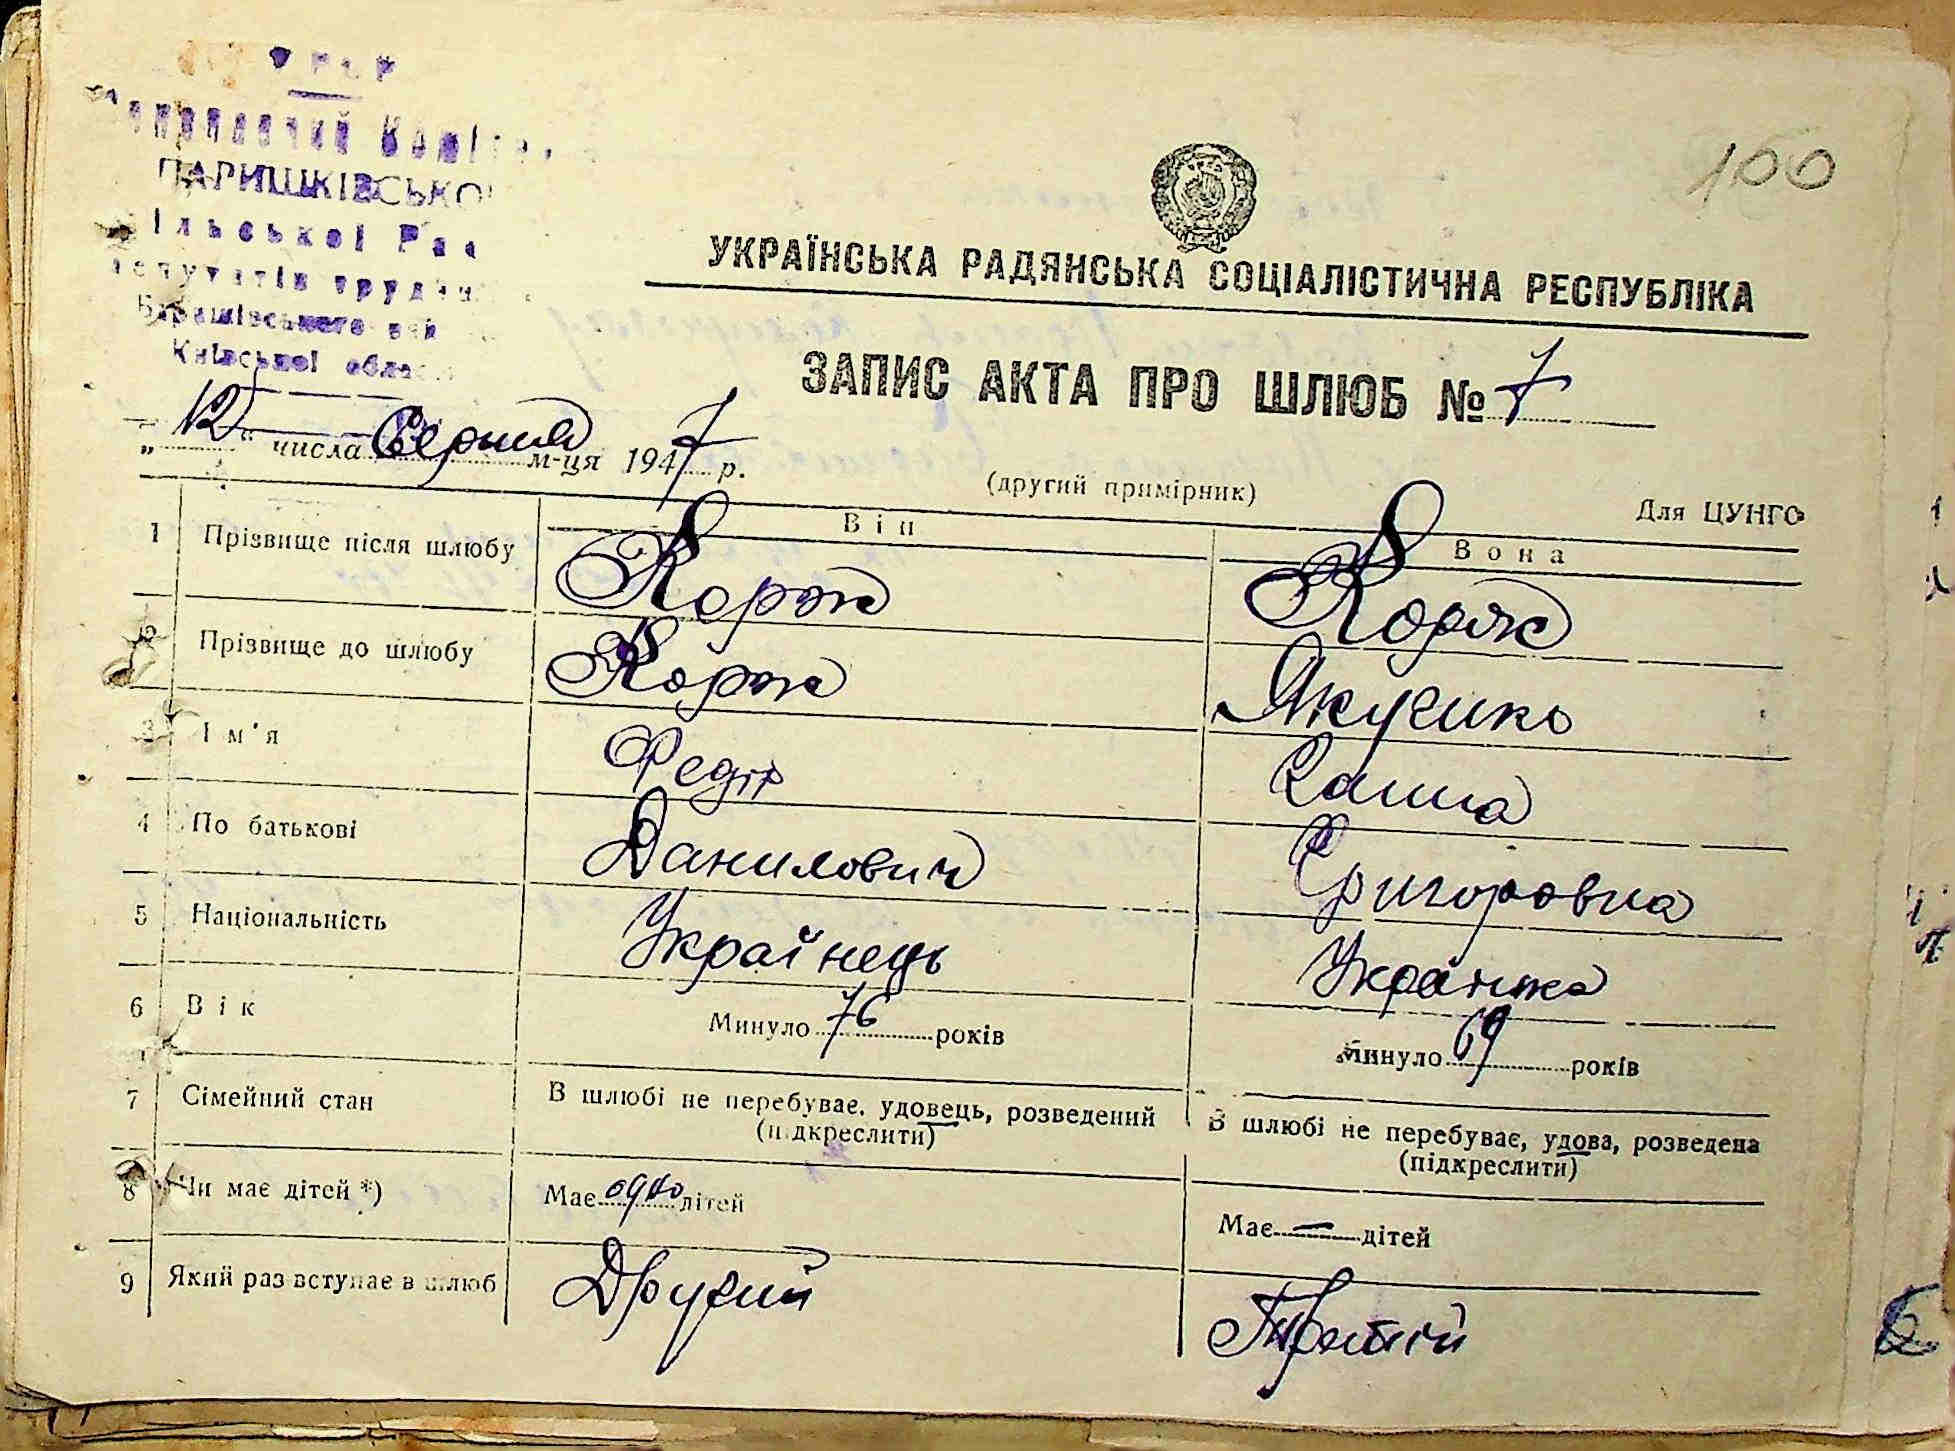 УРСР
Виконавчий Коміте
ПАРИШКІВСЬКОЇ
ільської Рад
депутатів трудящ
Баришівського рай
Київської облас
100
УКРАЇНСЬКА РАДЯНСЬКА СОЦІАЛІСТИЧНА РЕСПУБЛІКА
ЗАПИС АКТА ПРО ШЛЮБ № 7
„12“ числа Серпня м-ця 1947 р.
(другий примірник)
Для ЦУНГО
Він Вона
1 Прізвище після шлюбу Корж Корж
2 Прізвище до шлюбу Корж Якусико
3 Ім'я Федір Ганна
4 По батькові Данилович Григоровна
5 Національність Українець Українка
6 Вік Минуло 76 років Минуло 69 років
7 Сімейний стан В шлюбі не перебуває, удовець, розведений В шлюбі не перебуває, удова, розведена
(підкреслити) (підкреслити)
8 Чи має дітей *) Має одно дітей Має — дітей
9 Який раз вступає в шлюб Другий Третій